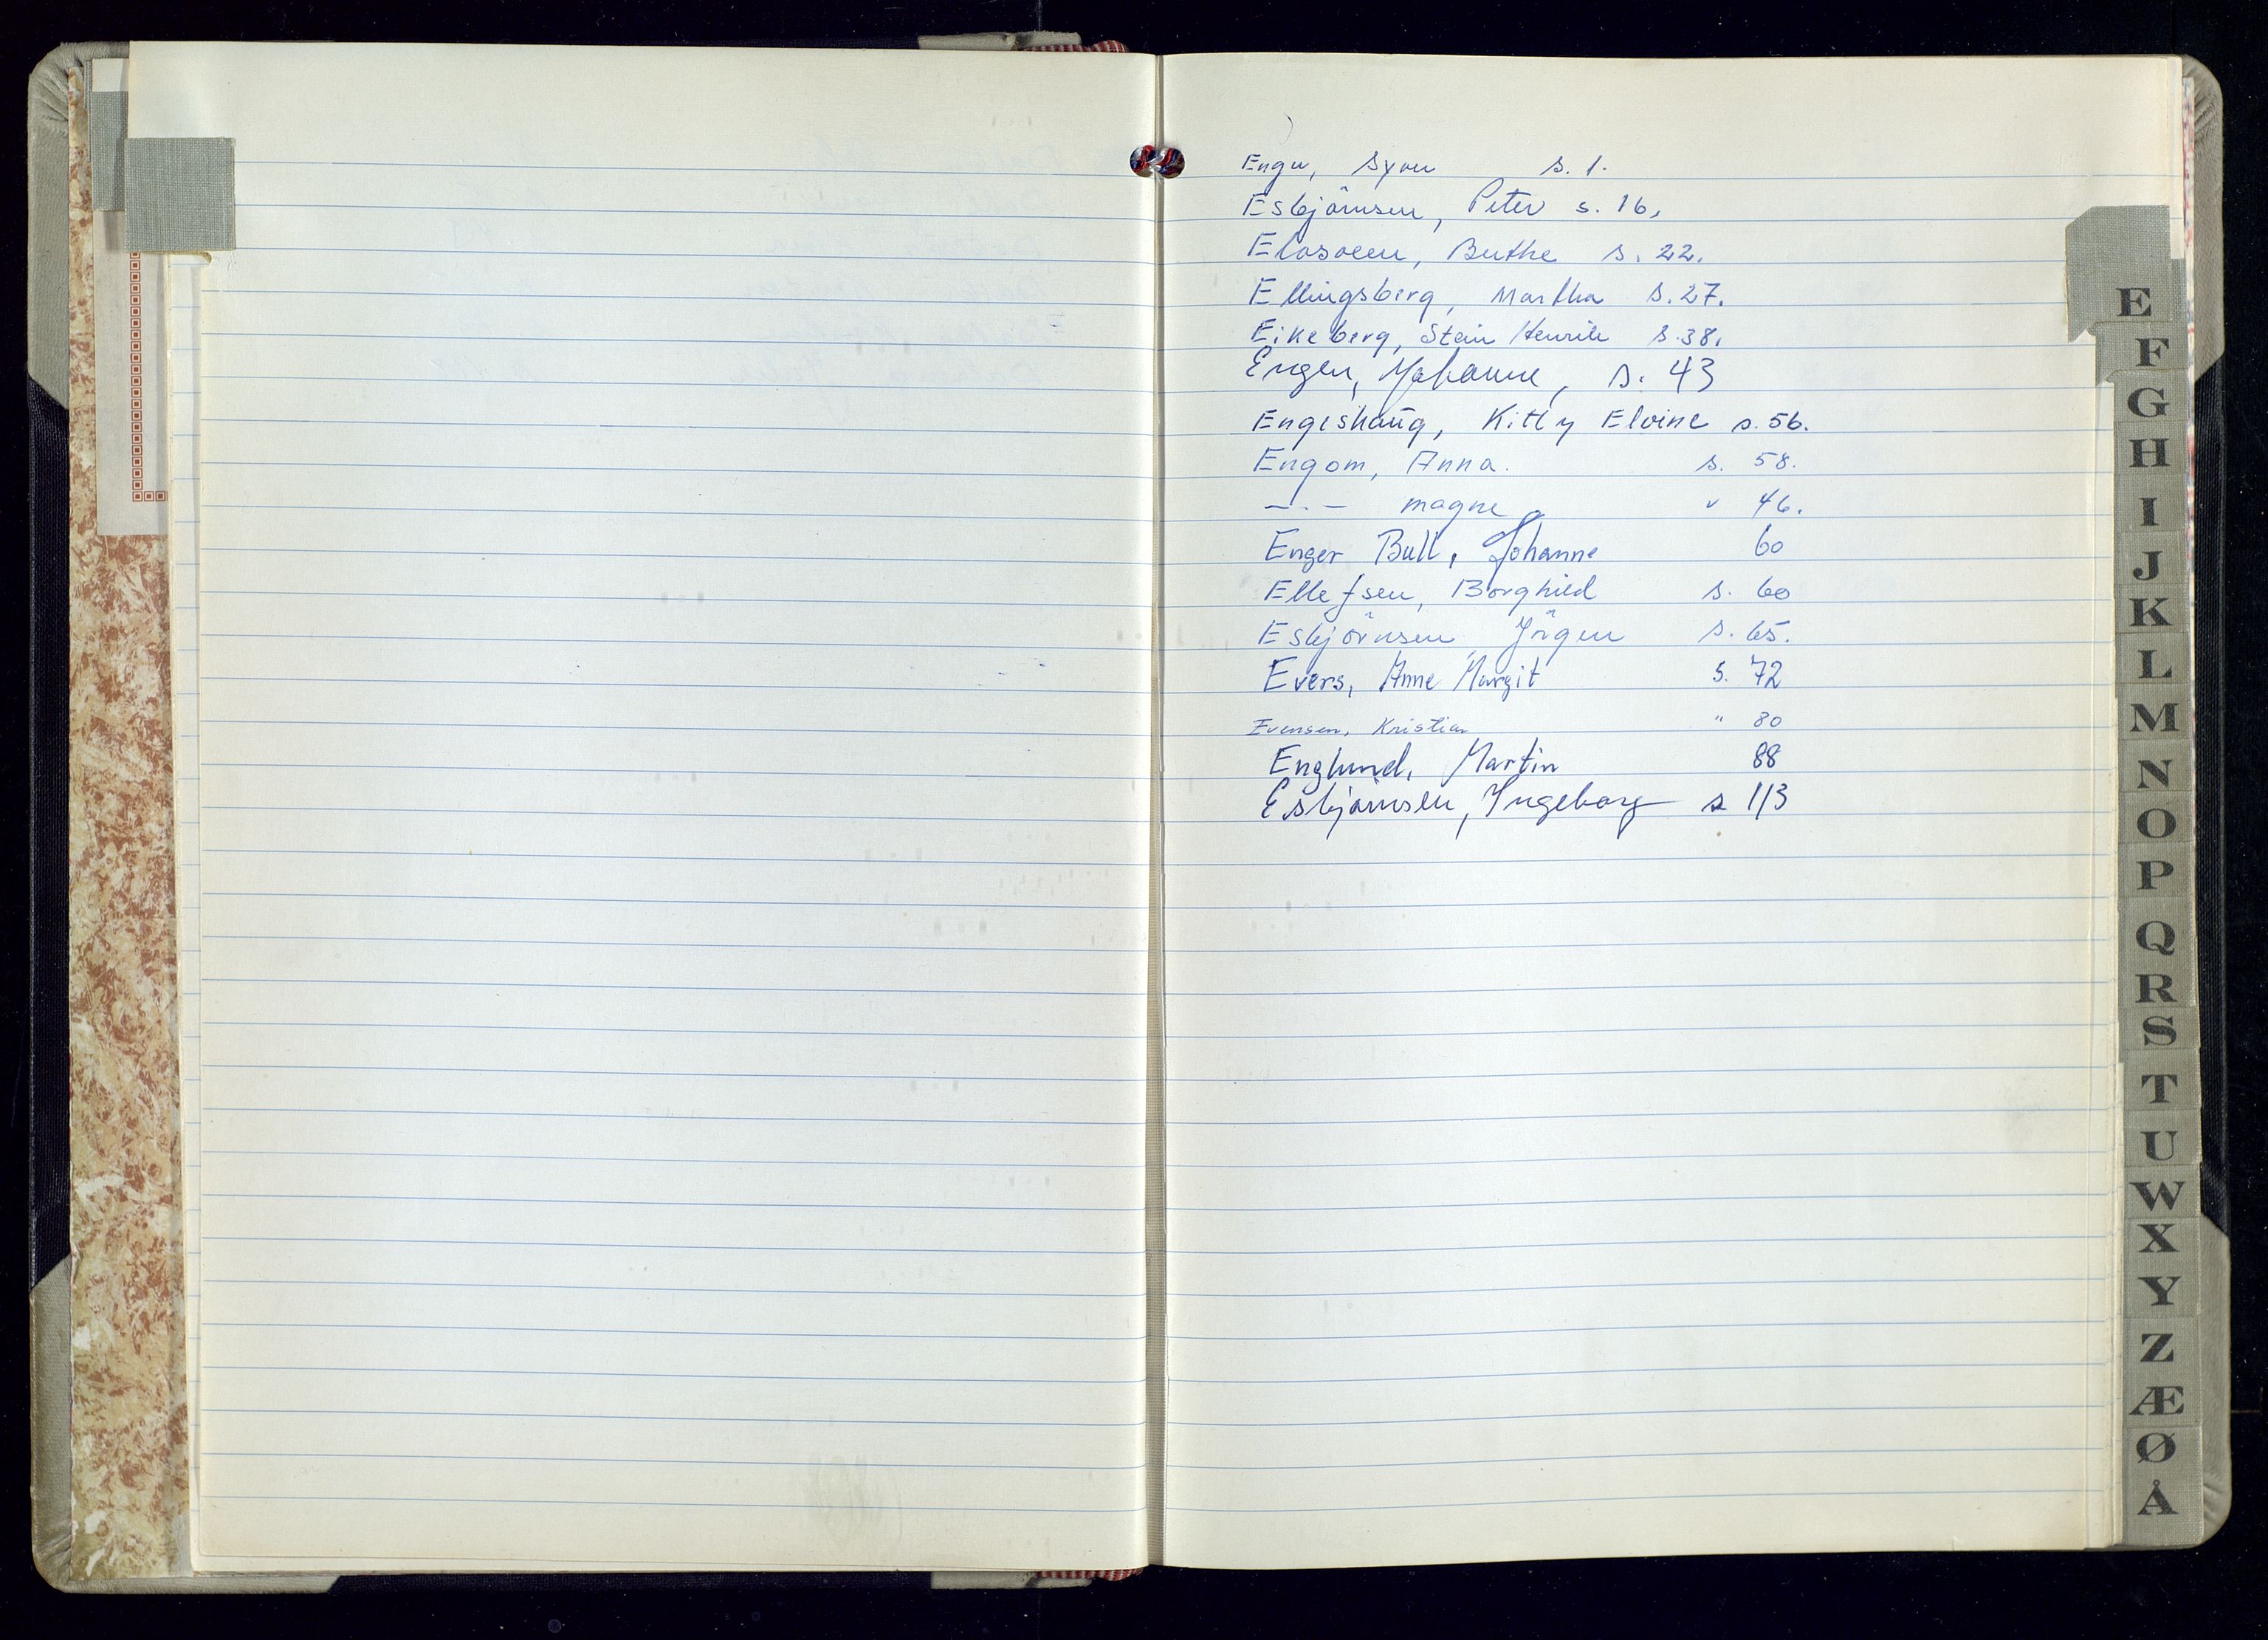 Enger, s. 1.
Esbjörnsen, Peter s. 16.
Berthe s. 22.
Ellingsberg, Martha s. 27.
Eikeberg, Stein Henrik s. 38.
Engen, Johanne, s. 43
Engeshaug, Kitty Elvine s. 56.
Engom, Anna. s. 58.
—.— magne " 46.
Enger Bull, Johanne 60
Ellefsen, Borghild s. 60
Esbjörnsen, Jörgen s. 65.
Evers, Anne Margit s. 72
Evensen, Kristian " 80
Englund, Martin 88
Esbjörnsen, Ingeborg s 113
E
F
G
H
I
J
K
L
M
N
O
P
Q
R
S
T
U
W
X
Y
Z
Æ
Ø
Å